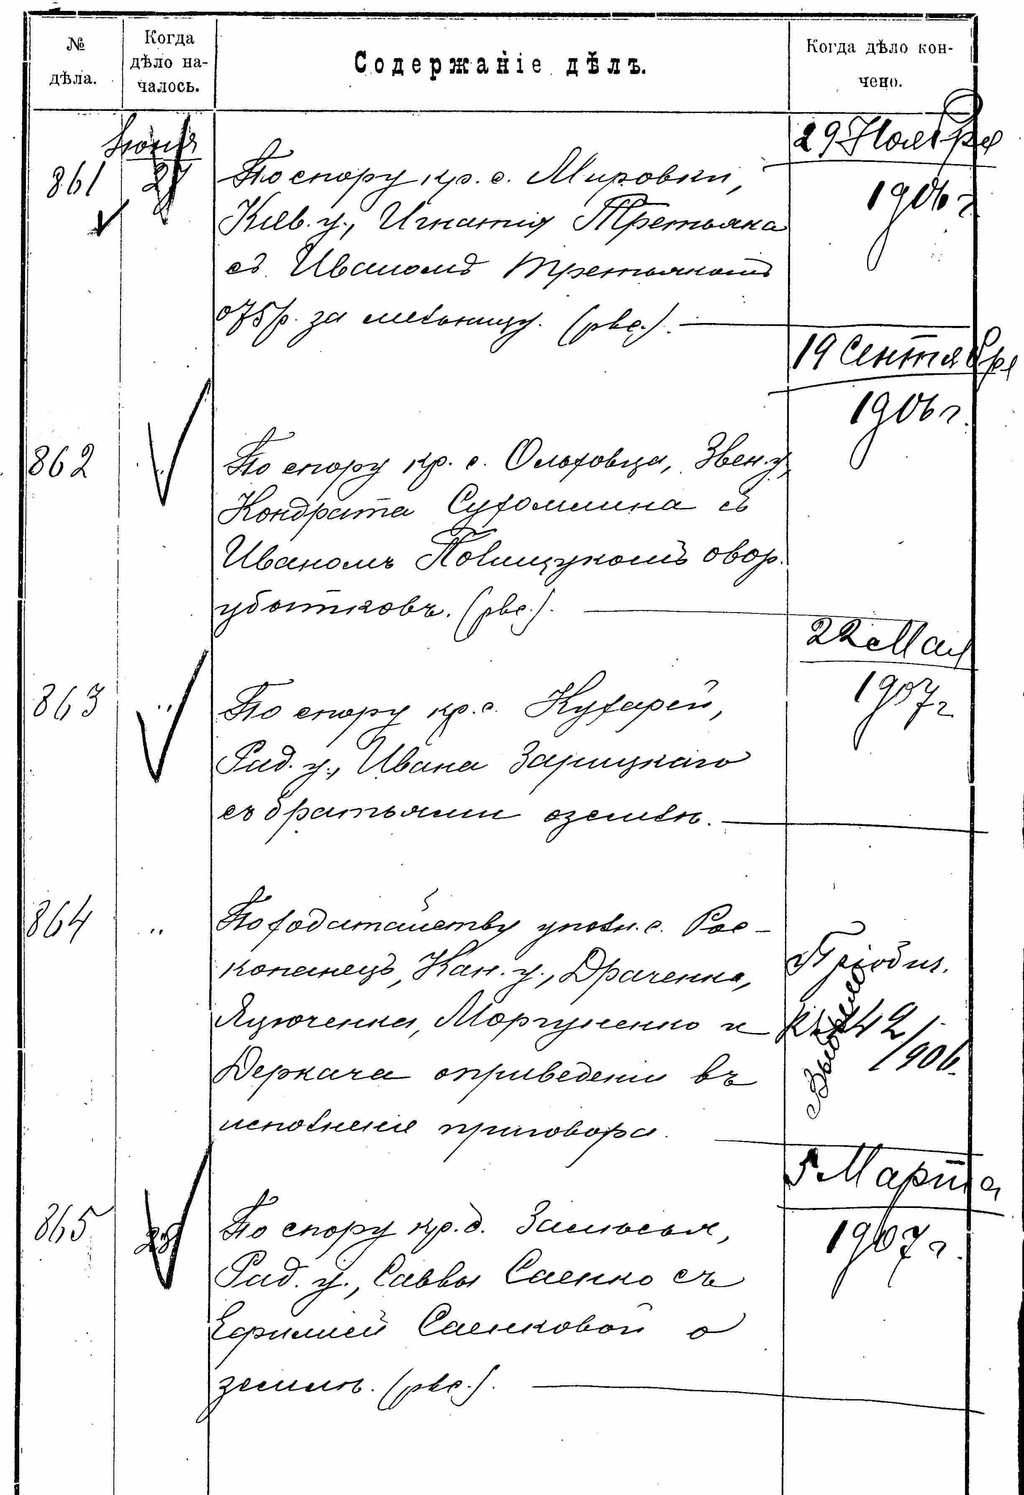 № дѣла.
Когда дѣло на-
чалось.
Содержаніе дѣлъ.
Когда дѣло кон-
чено.
Іюня
861 27 По спору кр. с. Мировки,
Кіев. у., Игнатія Третьяка
съ Иваномъ Третьякомъ
о 75 р. за мельницу. (рвс.).
29 Ноября
1906 г.
862 " По спору кр. с. Ольховца, Звен. у,
Кондрата Сухомлина съ
Иваномъ Полищукомъ о вор.
убытковъ. (рвс.).
19 Сентября
1906 г.
863 " По спору кр. с. Кухарей,
Рад. у., Ивана Зарицкаго
съ братьями о землѣ.
22 Мая
1907 г
864 " По ходатайству уполн. с. Рос-
копанецъ, Кан. у., Драченка,
Яцюченка, Моргуненко и
Деркача о приведеніи въ
исполненіе приговора.
Пріобщ.
къ 42/906.
Выбыло
865 28 По спору кр. д. Замосья,
Рад. у., Саввы Саенко съ
Ефиміей Саенковой о
землѣ. (рвс.).
5 Марта
1907 г.